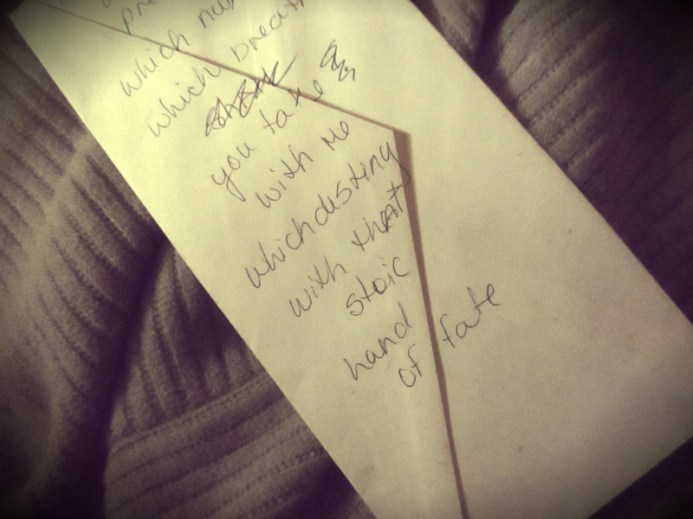 pre
which nu
which breat
you take
with me
which destiny
with that
stoic
hand
of fate